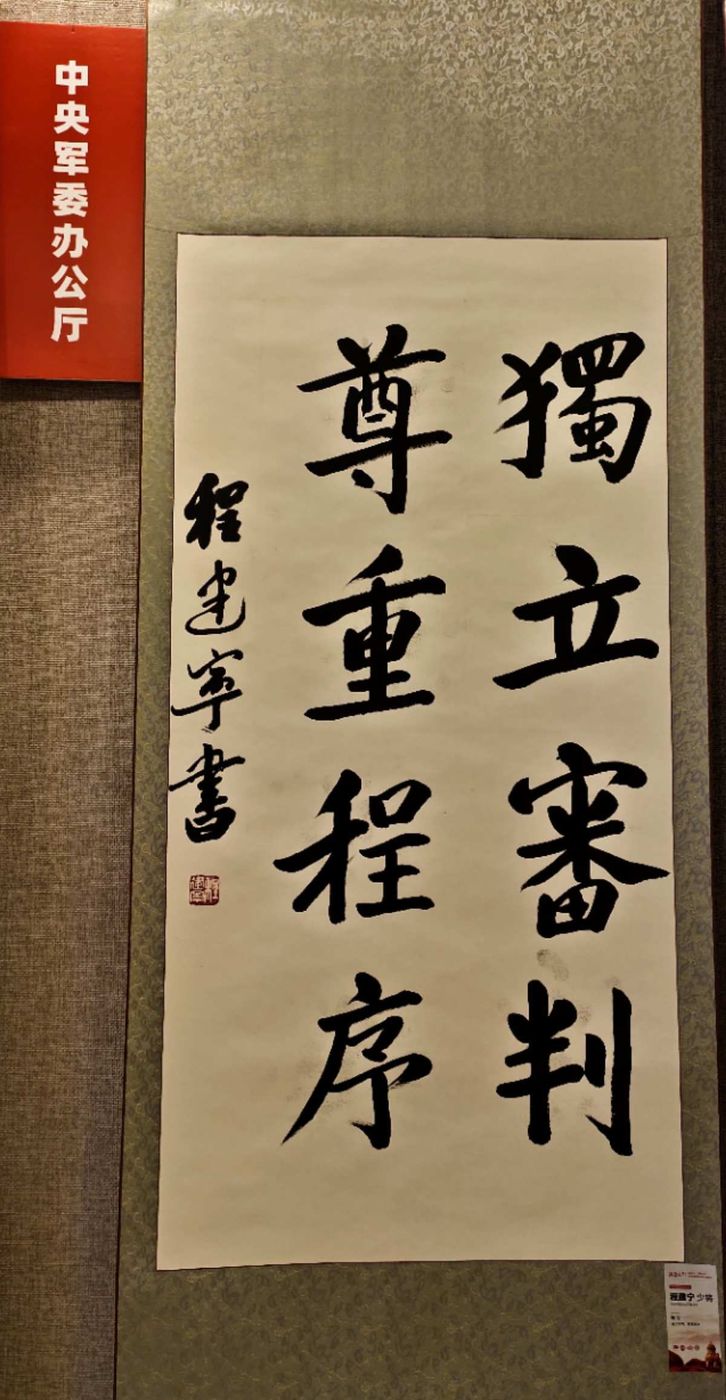 中央军委办公厅
獨立審判
尊重程序
程建寧書
程建宁 少将